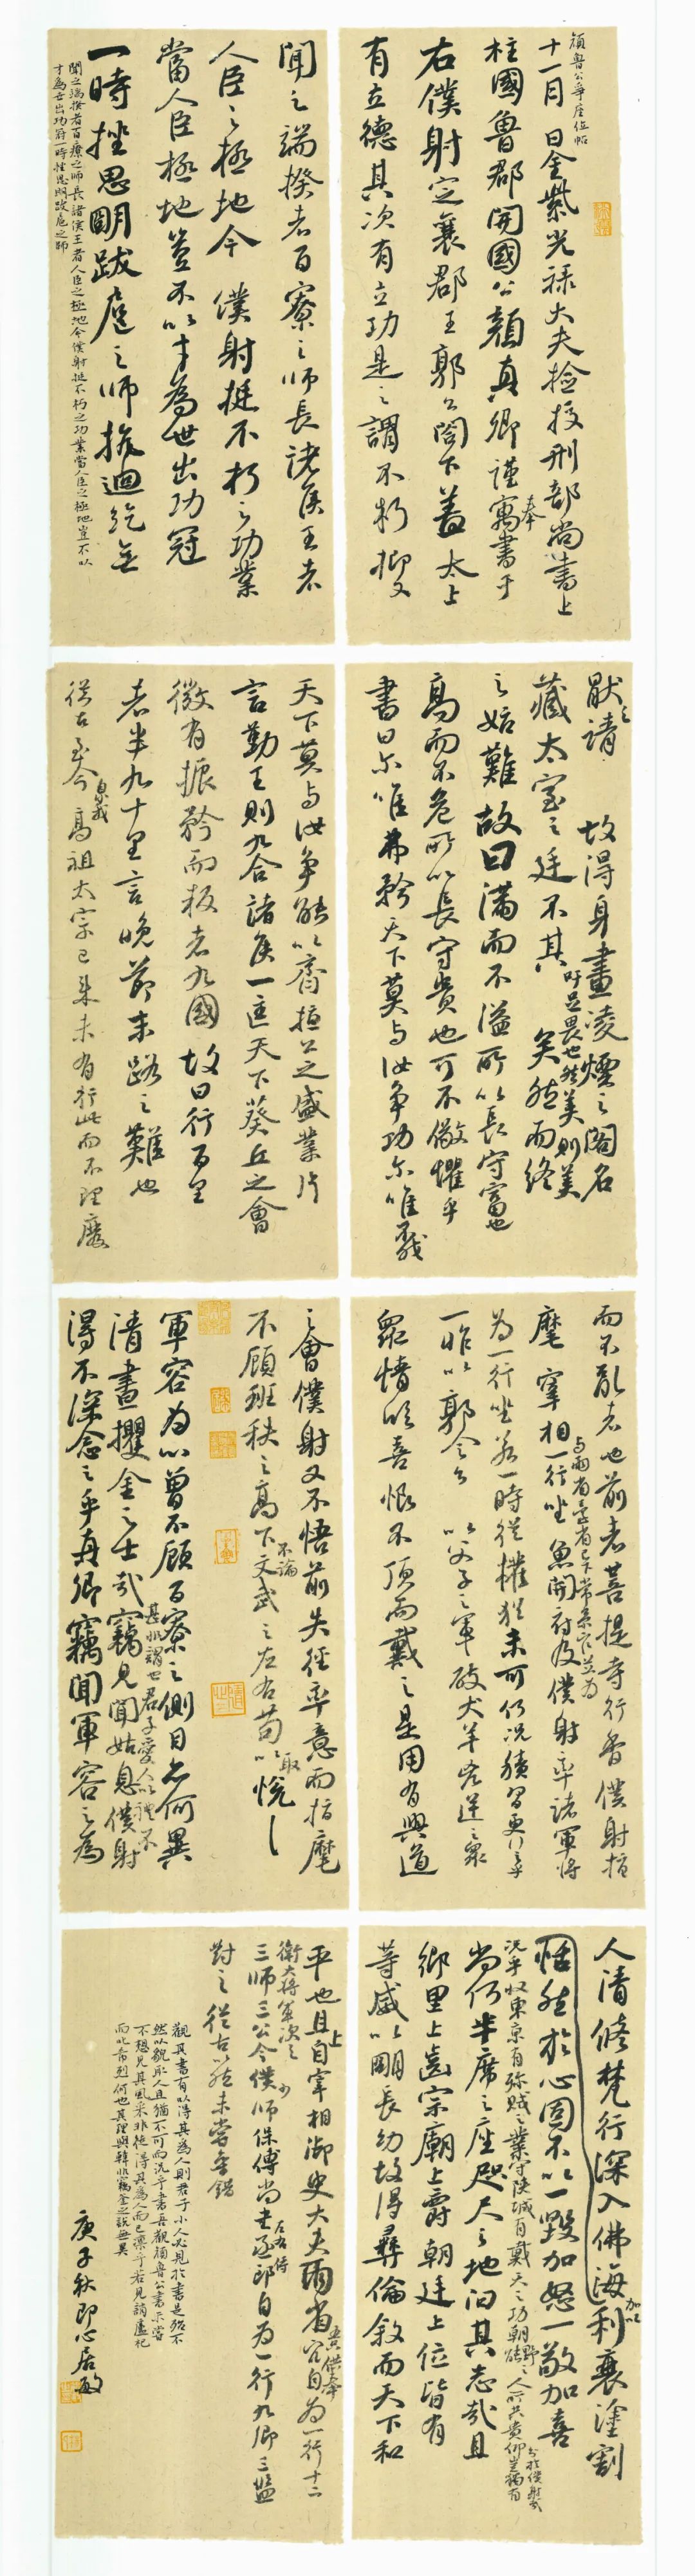 顏魯公爭座位帖
十一月 日金紫光祿大夫檢挍刑部尚書上
柱國魯郡開國公顏真卿謹奉寓書于
右僕射定襄郡王郭公閣下蓋太上
有立德其次有立功是之謂不朽抑又
聞之端揆者百寮之師長諸侯王者
人臣之極地今僕射挺不朽之功業
當人臣極地豈不以才為世出功冠
一時挫思明跋扈之師抗迴紇無
聞之端揆者百寮之師長諸侯王者人臣之極地今僕射挺不朽之功業當人臣之極地豈不以
才為世出功冠一時挫思明跋扈之師
猒之請 故得身畫凌煙之閣名
藏太室之廷不其 矣然而終
吁足畏也然美則美
之始難故曰滿而不溢所以長守富也
高而不危所以長守貴也可不儆懼乎
書曰尔唯弗矜天下莫与汝爭功尔唯
天下莫与汝爭能以齊桓公之盛業片
言勤王則九合諸侯一匡天下葵丘之會
微有振矜而叛者九國故曰行百里
者半九十里言晚節末路之難也
從古至今 高祖太宗已來未有行此而不理廢
而不亂者也前者菩提寺行香僕射指
麾宰相一行坐魚開府及僕射率諸軍將
与兩省臺省已下常參官並為
為一行坐若一時從權猶未可何況積習更行之乎
一昨以郭令公以父子之軍破犬羊兇逆之眾
眾情欣喜恨不頂而戴之是用有興道
之會僕射又不悟前失徑率意而指麾
不顧班秩之高下不論文武之左右苟以取悅
軍容為心曾不顧百寮之側目亦何異
清晝攫金之士哉甚非謂也君子愛人以禮不
竊見聞姑息僕射
得不深念之乎真卿竊聞軍容之為
人清修梵行深入佛海加以利衰塗割
恬然於心固不以一毀加怒一敬加喜
況乎收東京有殄賊之業守陝城有戴天之功朝野之人所共貴仰豈獨有
公於僕射哉
尚何半席之座咫尺之地汩其志哉且
鄉里上齒宗廟上爵朝廷上位皆有
等威以明長幼故得彝倫敘而天下和
平也且上自宰相御史大夫兩省五品供奉官自為一行十二
衛大將軍次之
三師三公令僕師保傅尚書左右丞侍郎自為一行九卿三監
對之從古以然未嘗參錯
觀其書有以得其為人則君子小人必見於書是殆不
然以貌取人且猶不可而況乎書吾觀顏魯公書未嘗
不想見其風采非徒得其為人而已凜乎若見誚盧杞
而叱希烈何也其理與韓非竊斧之說無異
庚子秋即心居敏